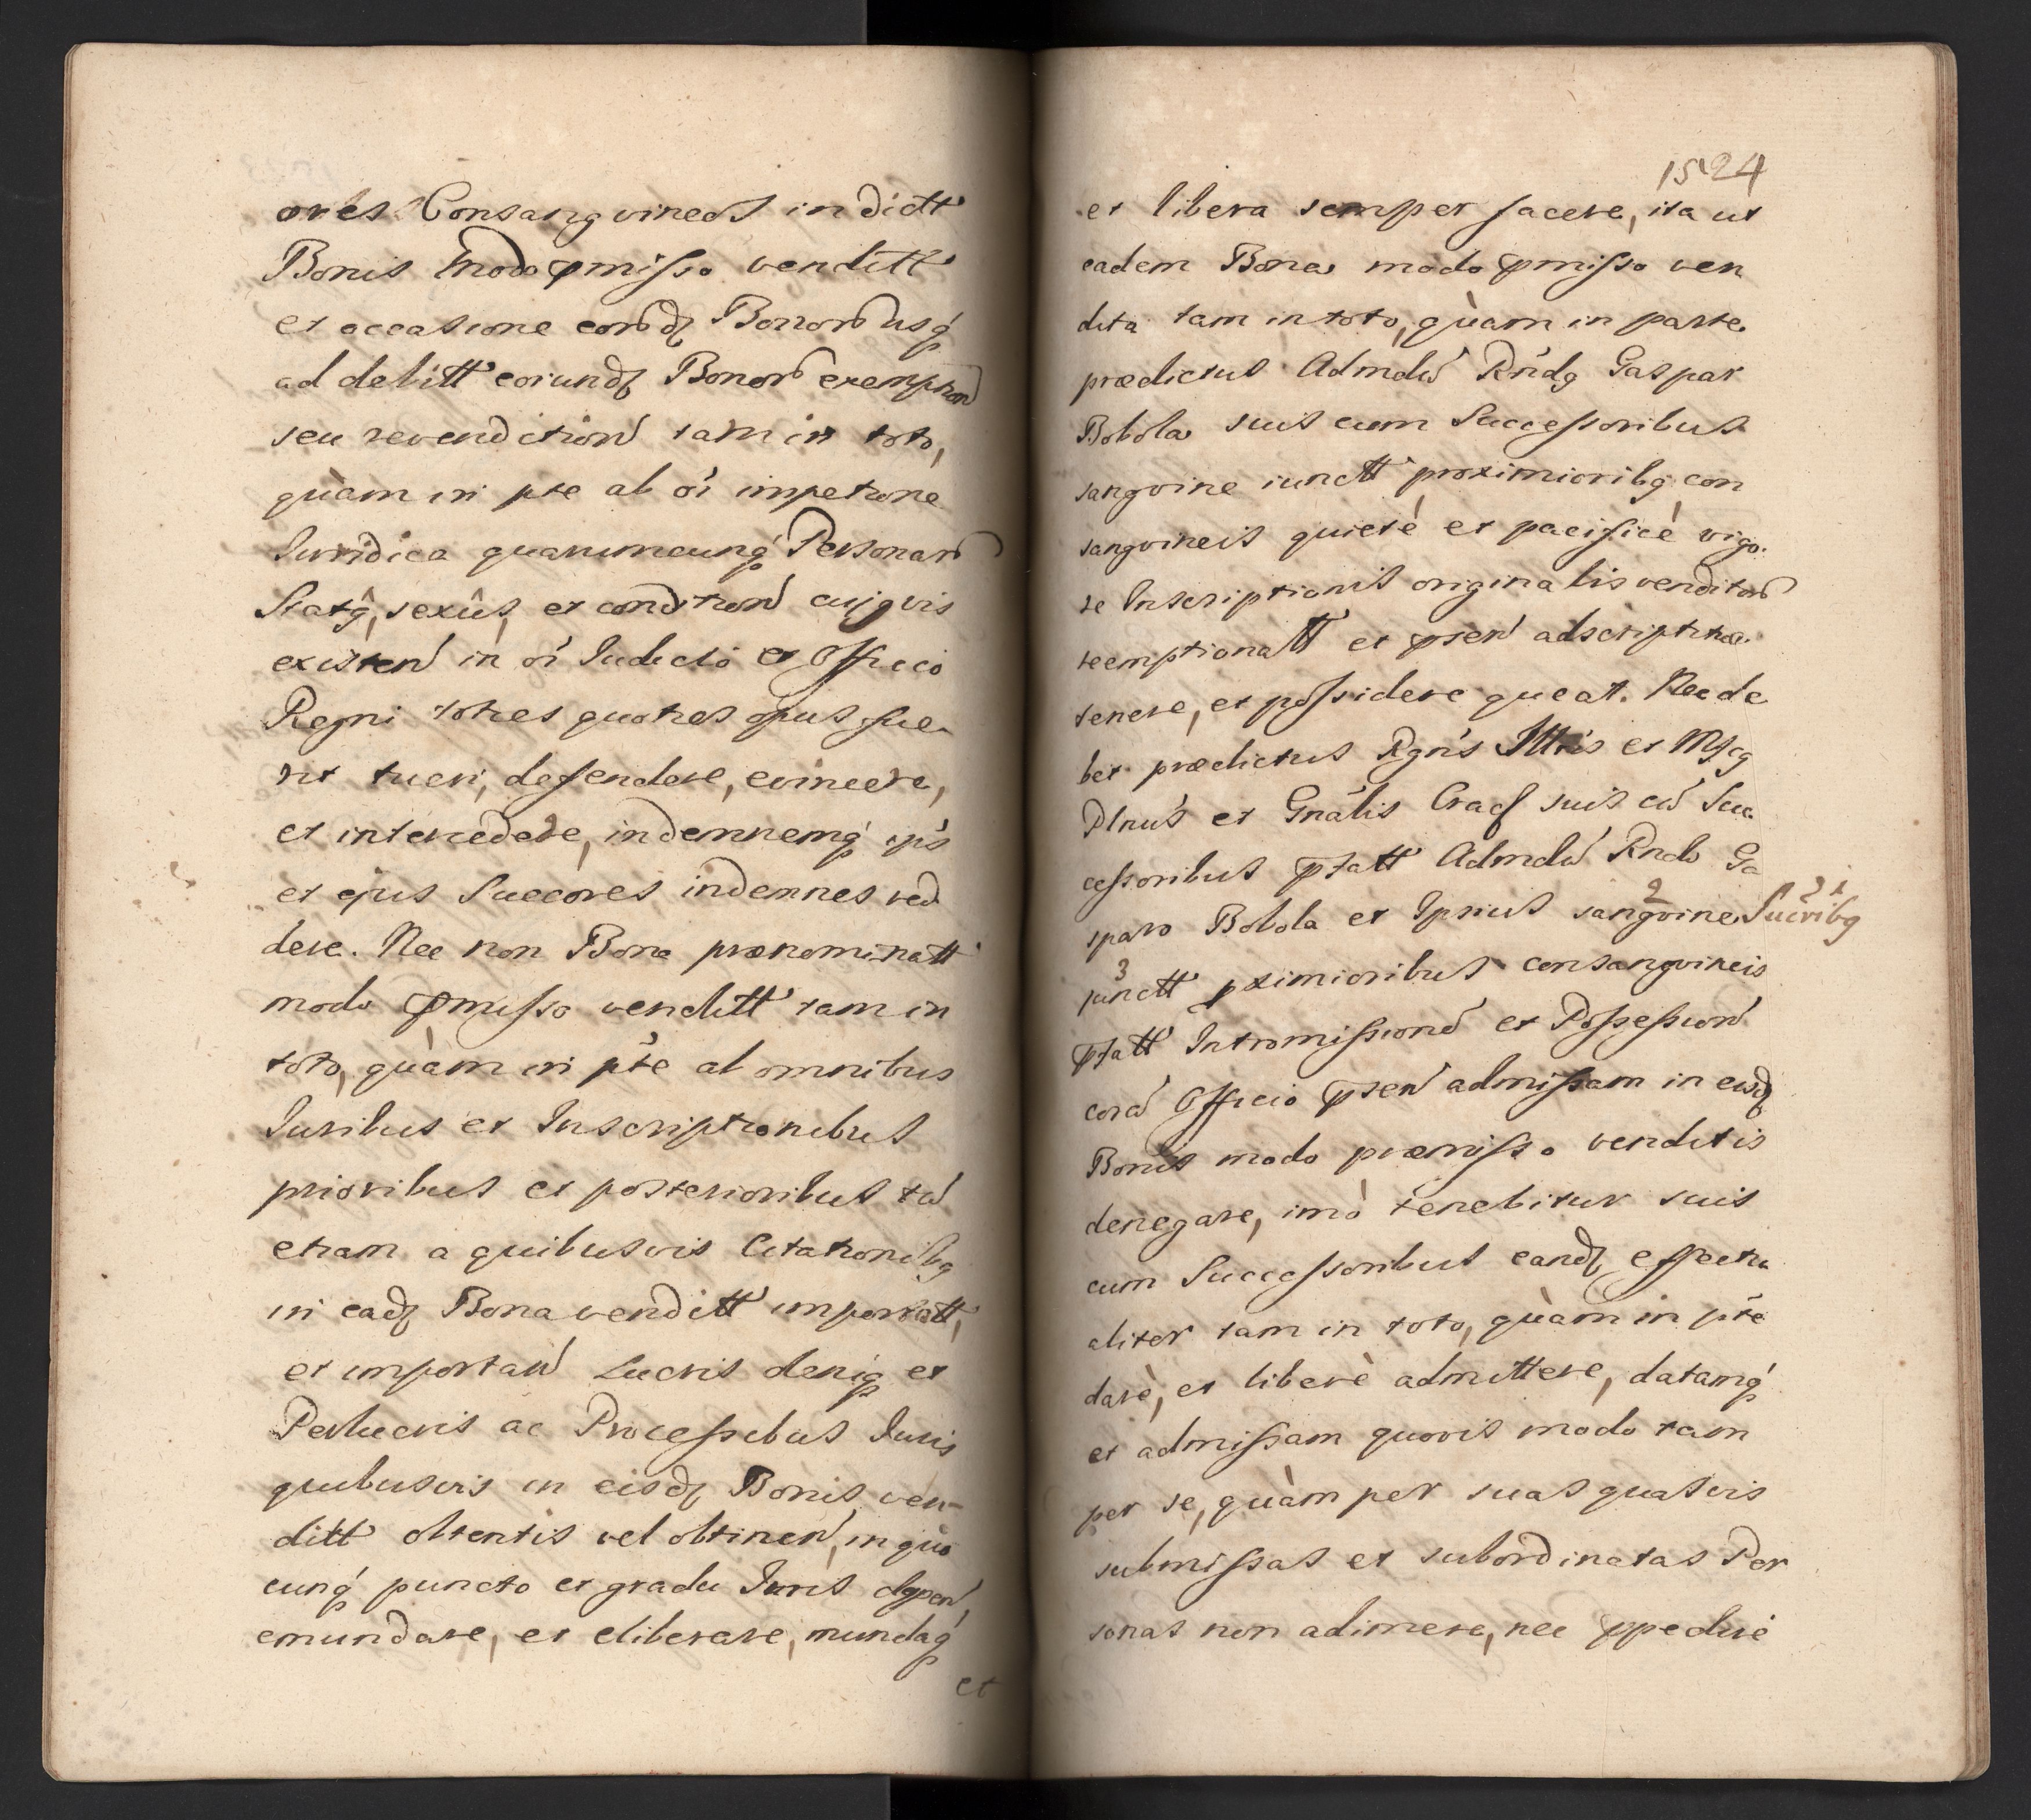 ores Consangvineos in dictt
Bonis modo pmisso venditt
et occasione eord₃ Bonor usq́
ad debitt eorund₃ Bonor exemption
seu revendition tam in toto,
quàm in pte ab oi impetione
Iuridica quarumcunq́ Personar
Statq̂, sexûs, et condition cujqvis
existen in oi Iudicio et Officio
Regni toties quoties opus fue-
rit tueri, defendere, evincere,
et intercedere, indemnemq́ ips
et ejus Succores indemnes red
dere. Nec non Bona prænominatt
modo pmisso venditt tam in
toto, quàm in pte ab omnibus
Iuribus et Inscriptionibus
prioribus et posterioribus tu
etiam a quibusvis Citationibq
in ead₃ Bona venditt importatt,
et importan Lucris deniq́ et
Perlucris ac Processibus Iuris
quibusvis in eisd₃ Bonis ven-
ditt obtentis vel obtinen, in quo
cunq́ puncto et gradu Iuris
emundare, et eliberare, mundaq́
et
1524
et libera semper facere, ita ut
eadem Bona modo pmisso ven
dita tam in toto, quàm in parte
prædictus Admdu Rndq Gaspar
Bobola suis cum Successoribus
sangvine iunctt proximioribq con
sangvineis quietè et pacificè vigo.
re Inscriptionis originalis venditor
reemptionatt et psen adscriptitiæ
tenere, et possidere queat. Nec de
bet prædictus Rgnis Illris et Mfcq
Plnus et Gnalis Crac suis cu Suc
cessoribus pfatt Admdu Rndo Ga
sparo Bobola et Ipsius sangvine 2 Sucribq 1
junctt 3 pximioribus consangvineis
pfatt Intromission et Possession
cora Officio psen admissam in eisd₃
Bonis modo præmisso venditis
denegare, imò tenebitur suis
cum Successoribus eand₃ effectu
aliter tam in toto, quàm in pte
dare, et liberè admittere, datamq́
et admissam quovis modo tam
per se, quàm per suas quasvis
submissas et subordinatas Per
sonas non adimere, nec ppedire